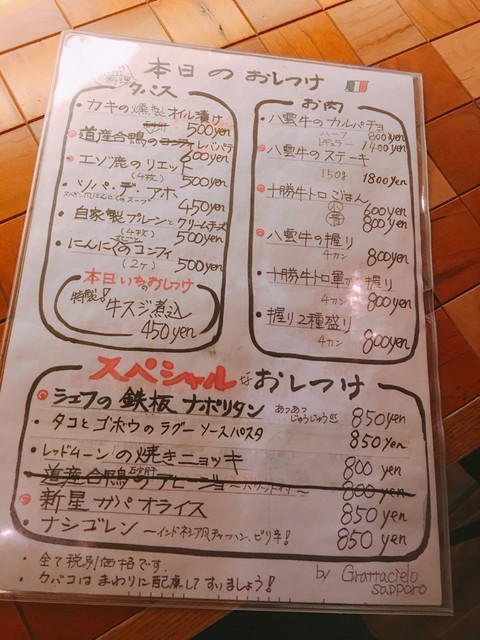 本日のおしつけ
タパス
・カキの燻製オイル漬け
500yen
道産合鴨のレバパテ
600yen
・エゾ鹿のリエット
(4枚) 500yen
・ソパ・デ・アホ
450yen
・自家製プレーンとクリームチーズ
(4枚) 500yen
・にんにくのコンフィ
(2ケ) 500yen
本日いちおしつけ
特製! 牛スジ煮込
450yen
お肉
・八雲牛のカルパチョ
ハーフ 800yen
レギュラー 1400yen
・八雲牛のステーキ
150g 1800yen
十勝牛トロごはん
小 600yen
普 800yen
八雲牛の握り
4カン 800yen
・十勝牛トロ軍かん握り
4カン 800yen
・握り2種盛り
4カン 800yen
スペシャルなおしつけ
シェフの鉄板ナポリタン あつあつじゅうじゅう 850yen
・タコとゴボウのラグーソースパスタ 850yen
・レッドムーンの焼きニョッキ 800yen
道産合鴨砂肝のアヒージョ 〜バゲット付〜 800yen
新星ガパオライス 850yen
・ナシゴレン 〜インドネシア風チャーハン、ピリ辛! 850yen
・全て税別価格です。
・タバコはまわりに配慮してすいましょう!
by Grattacielo
sapporo